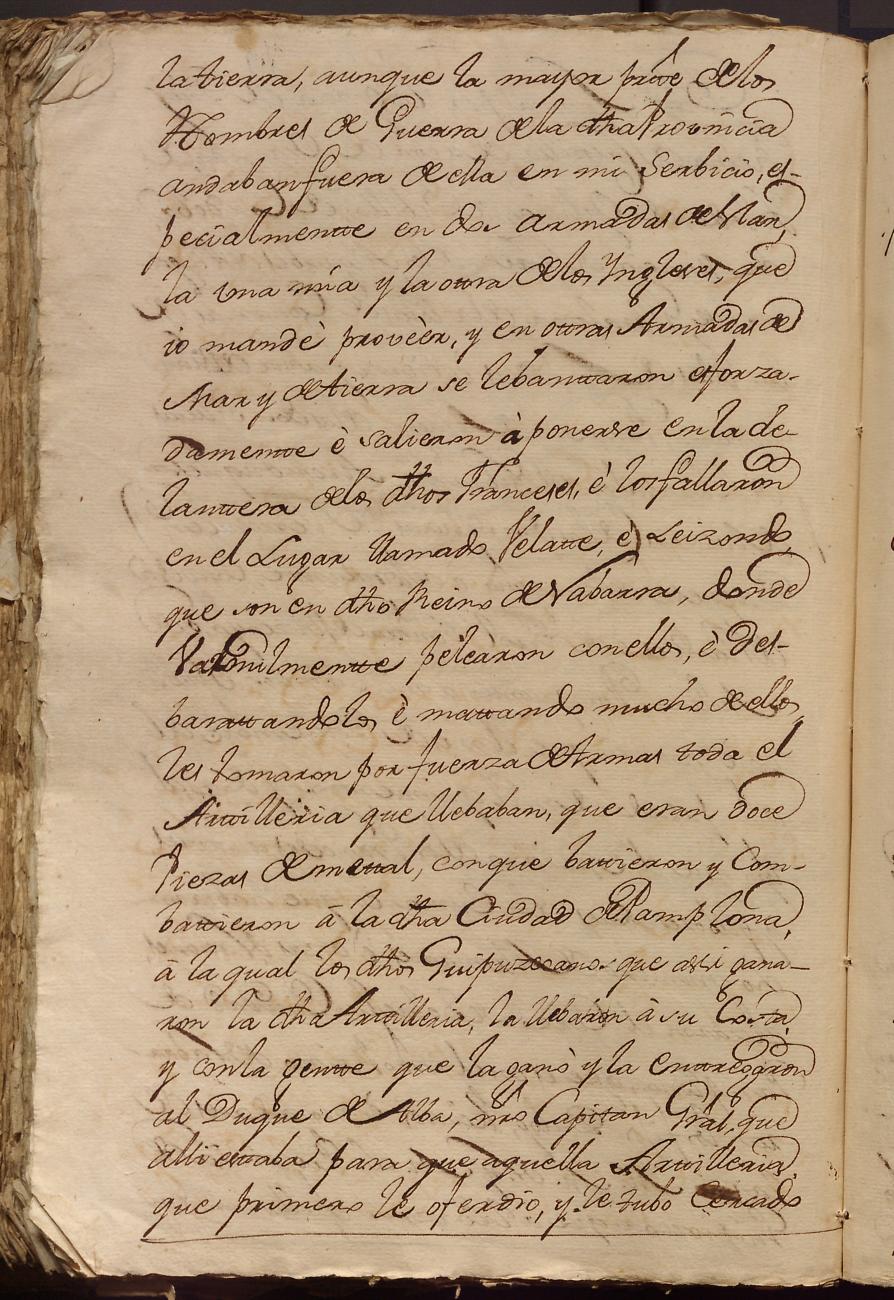 la tierra, aunque la mayor prte de los
Hombres de Guerra de la dha Provincia
andaban fuera de ella en mi Serbicio, es-
pecialmente en dos armadas de Vlan,
la una mia y la otra de los Yngleses, que
io mandè proveèr, y en otras Armadas de
Mar y de tierra se lebantaron esforza-
damente è salieron à ponerse en la de-
lantera de los dhos Franceses, è los fallaron
en el Lugar llamado Velate, è Leizondo,
que son en dho Reino de Nabarra, donde
Varonilmente peleàron con ellos, è des-
baratandolos è matando mucho de ellos,
les tomaron por fuerza de Armas toda el
Artilleria que llebaban, que eran doce
Piezas de metal, con que batieron y Com-
batieron à la dha Ciudad de Pamplona,
à la qual los dhos Guipuzcoanos que assi gana-
ron la dha Artilleria, la llebaron à su Costa,
y con la gente que la ganò y la entregaron
al Duque de Alba, nro Capitan Gral, que
alli estaba para que aquella Artilleria,
que primero le ofendio, y le tubo Cercado